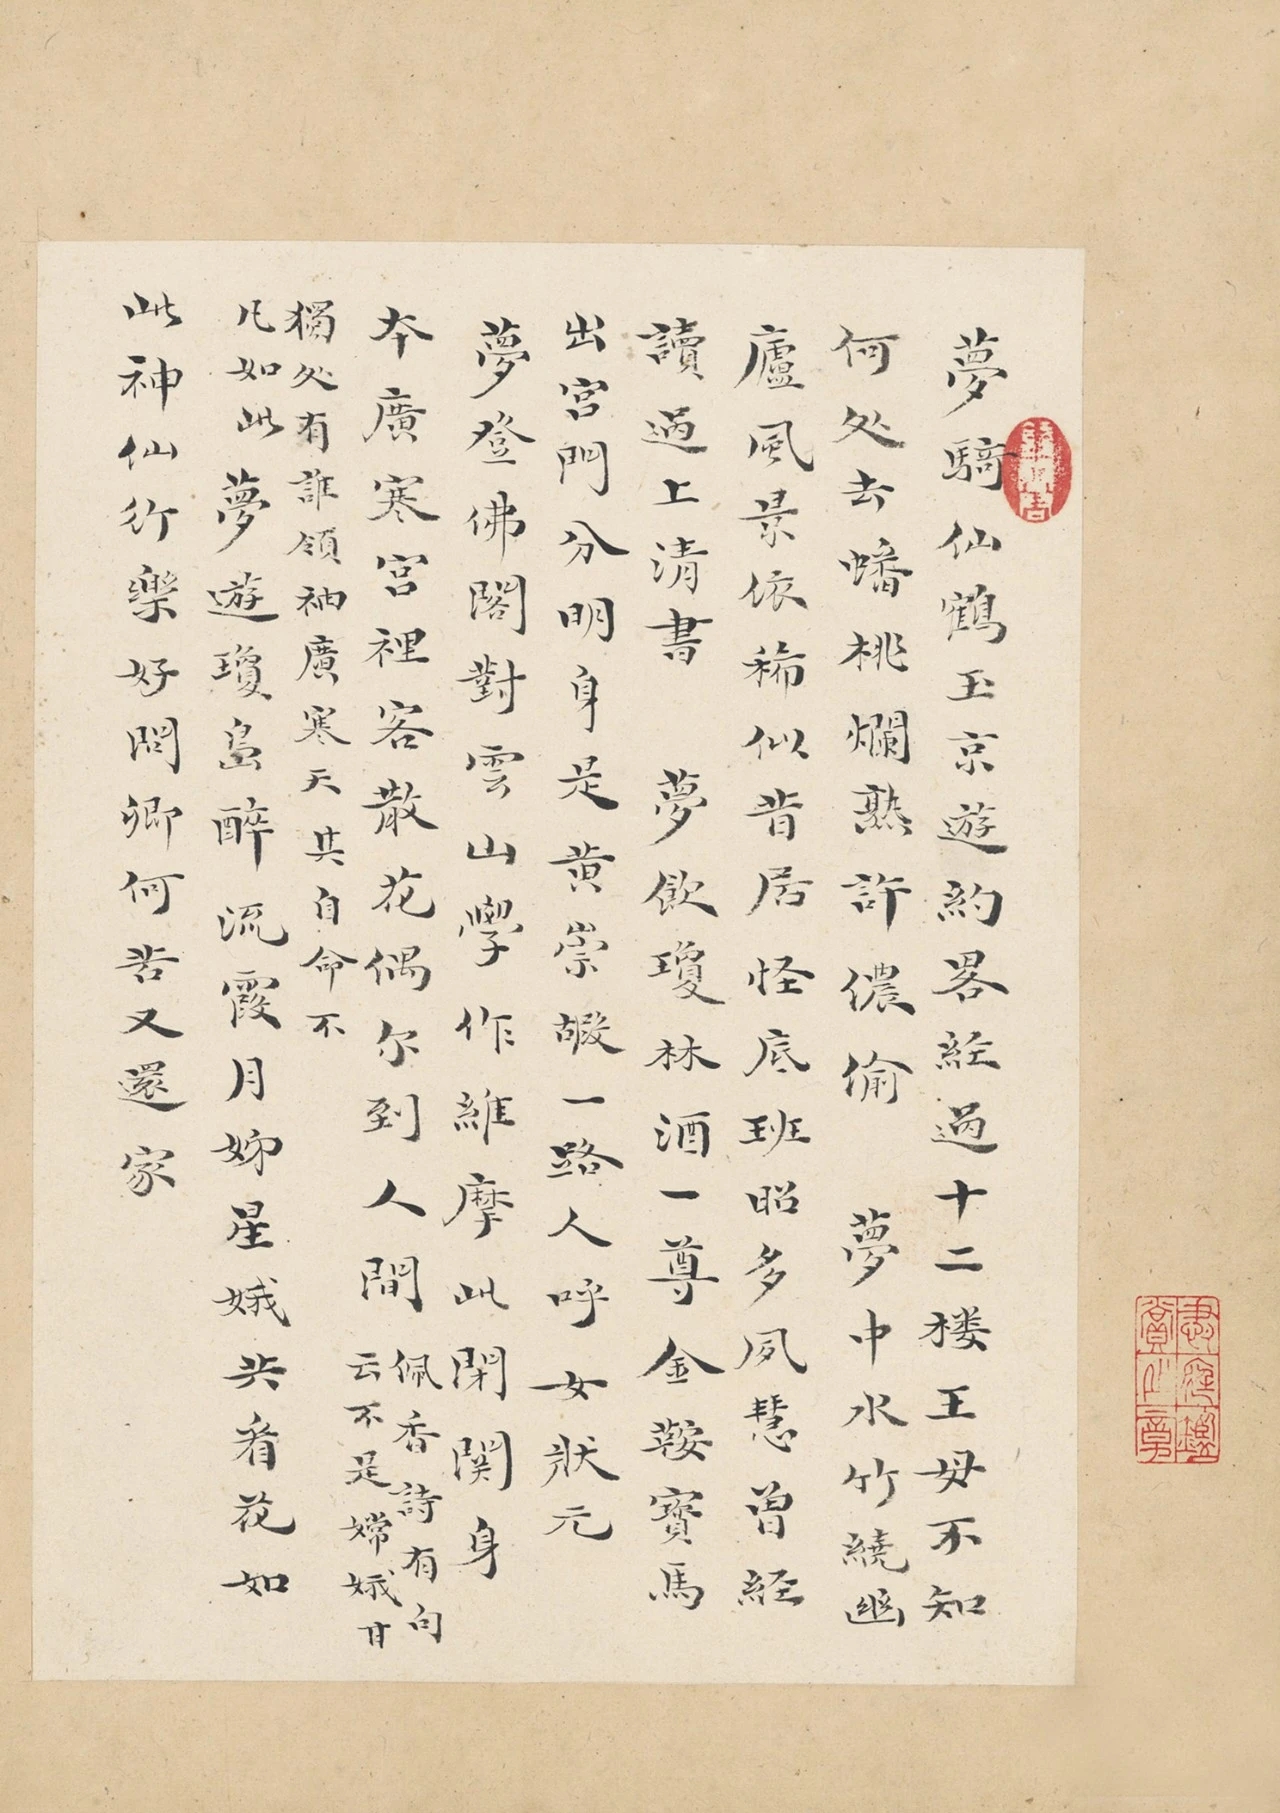 夢騎仙鶴玉京遊約畧経過十二楼王母不知
何处去蟠桃爛熟許儂偷　夢中水竹繞幽
廬風景依稀似昔居怪底班昭多夙慧曾経
讀過上清書　夢飲瓊林酒一尊金鞍寶馬
出宫門分明身是黄崇嘏一路人呼女狀元
夢登佛閣對雲山學作維摩此閉関身
本廣寒宫裡客散花偶尔到人間
佩香詩有句
云不是嫦娥甘
獨处有誰領袖廣寒天其自命不
凡如此
夢遊瓊島醉流霞月姊星娥共看花如
此神仙行樂好問卿何苦又還家